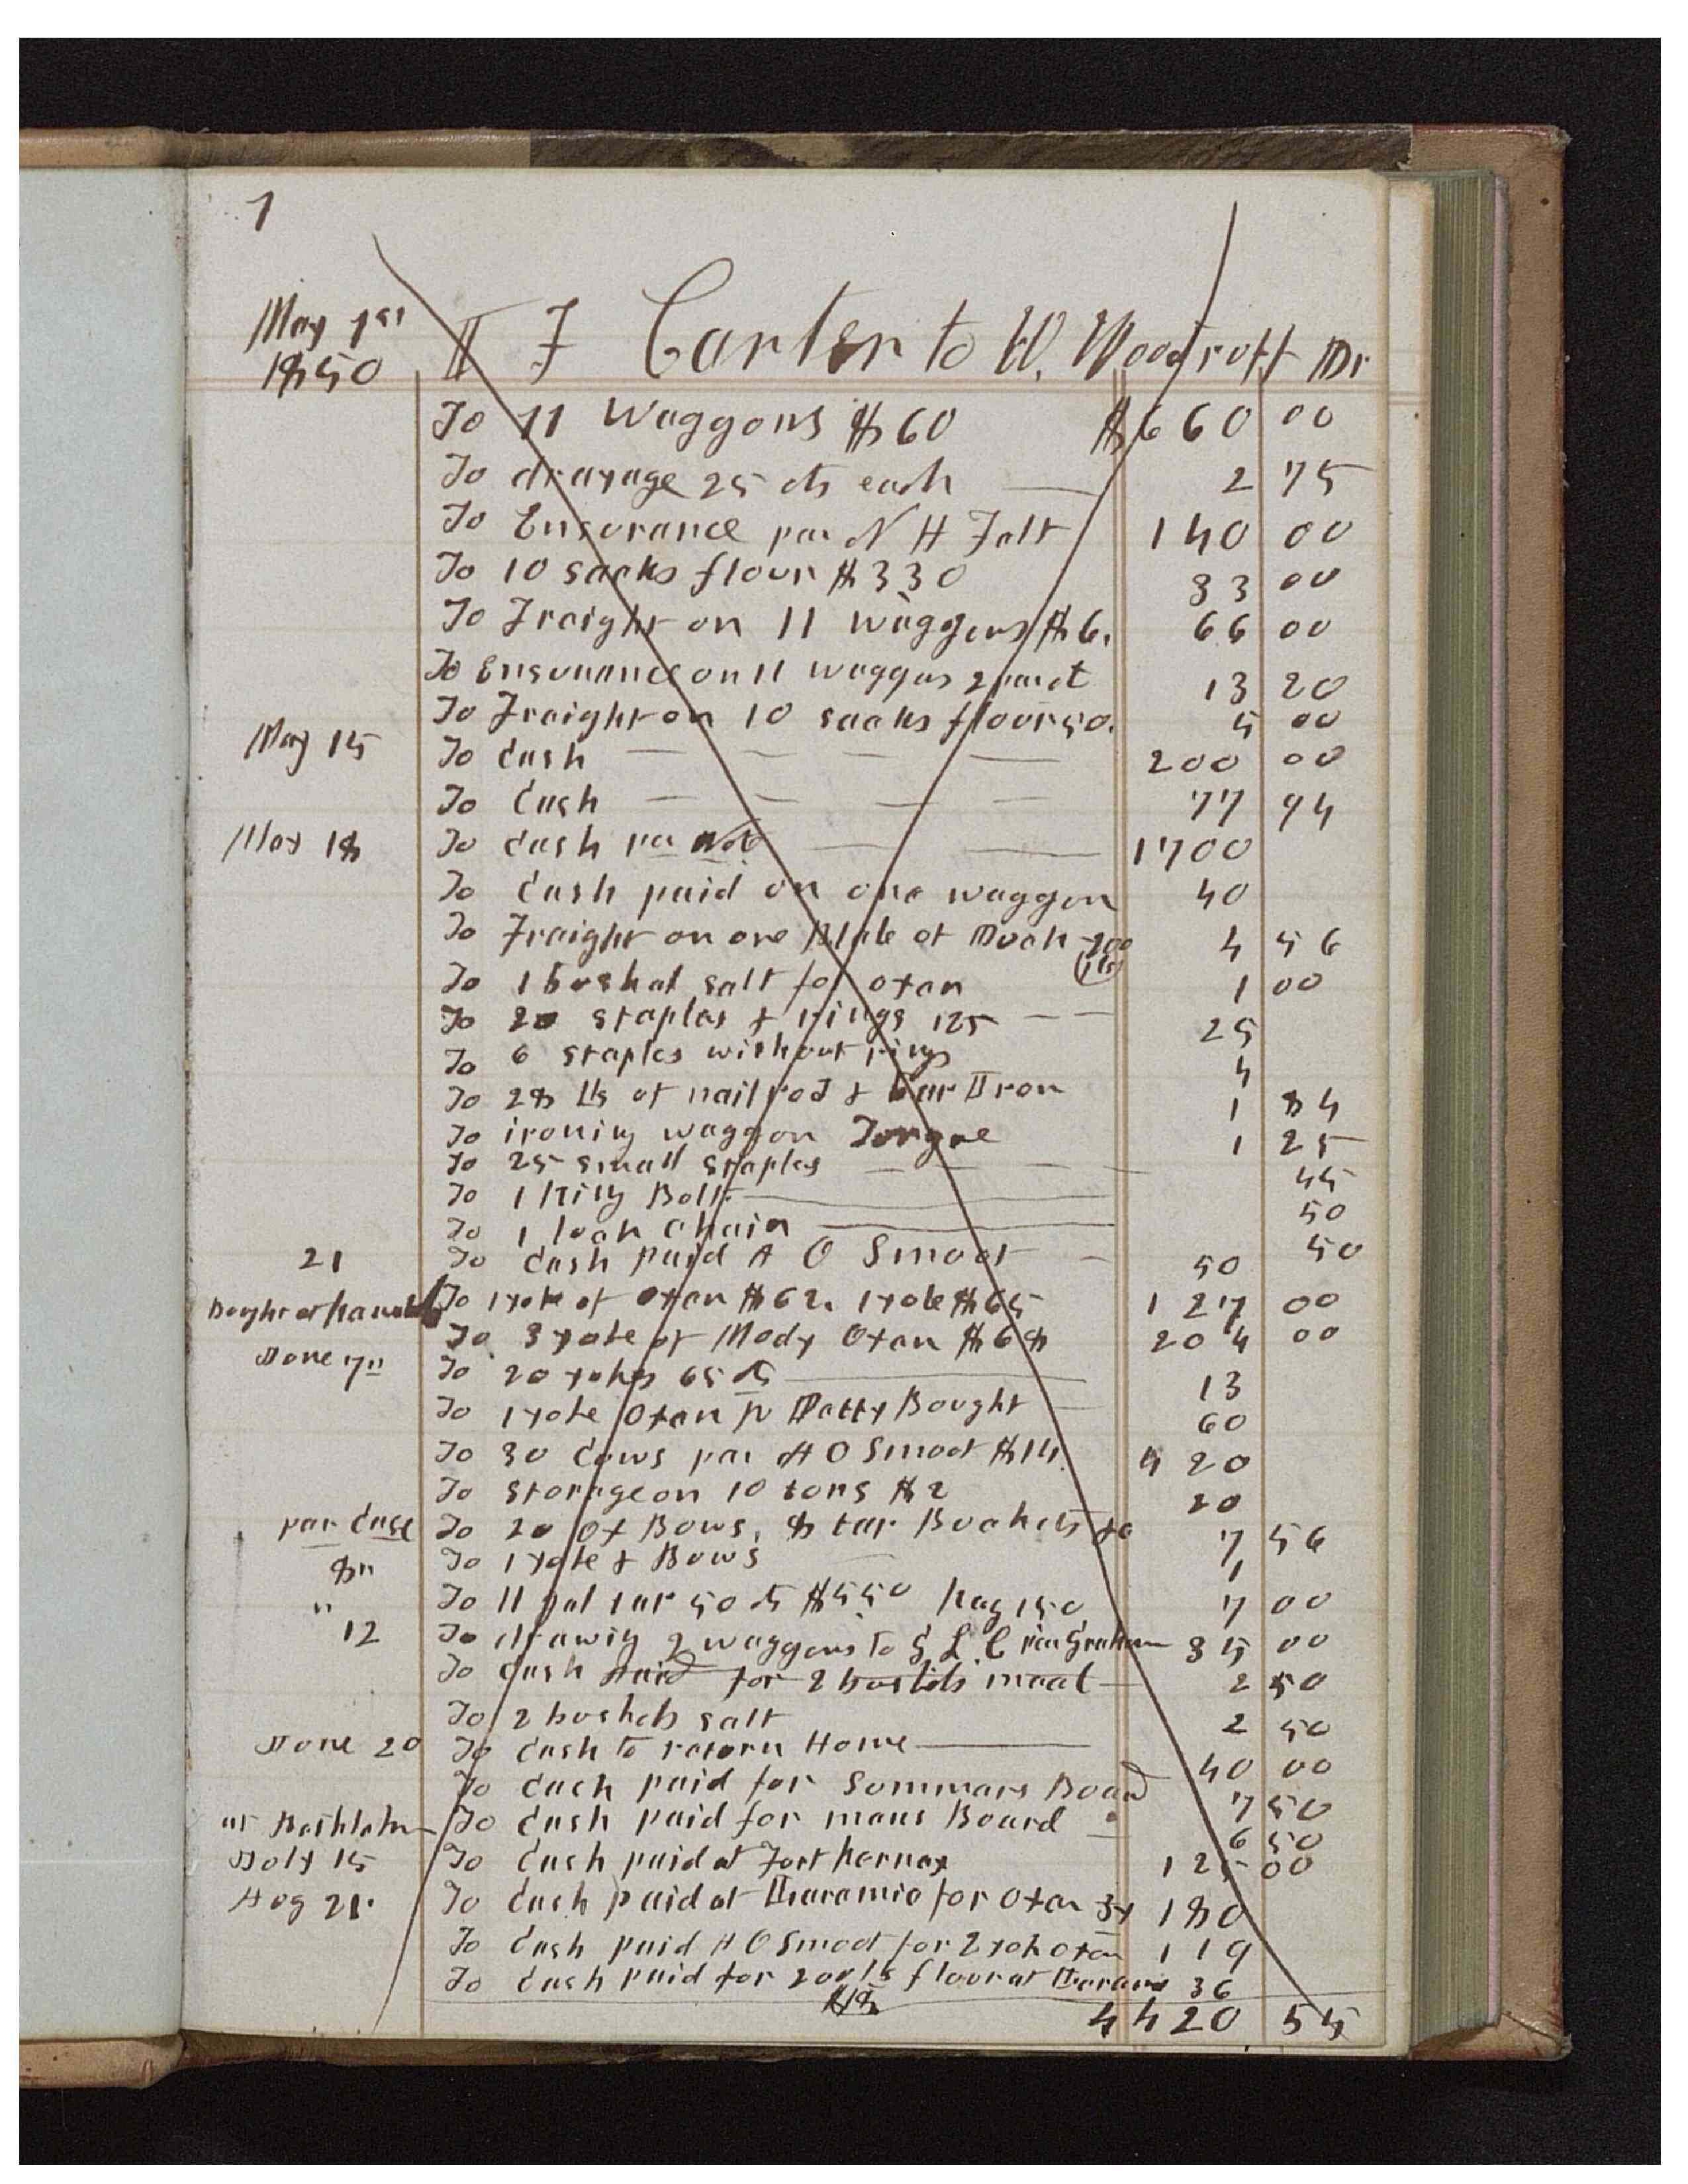 1
May 1st
1850
I F Carter to W. Woodruff Dr
To 11 Waggons $60 $660 00
To drayage 25 cts each 2 75
To Ensurance per N H Felt 140 00
To 10 sacks flour $330 33 00
To Fraight on 11 waggons $6. 66 00
To Ensurance on 11 waggons 2 per ct 13 20
To Fraight on 10 sacks flour 50. 5 00
May 15 To Cash 200 00
To Cash 77 94
May 18 To Cash per note 1700
To Cash paid on one waggon 40
To Fraight on one Bale of Duck 4 56
To 1 bushel salt for oxen 1 00
To 20 staples & rings 125 25
To 6 staples without rings 4
To 28 lbs of nail rod & bar Iron 1 84
To ironing waggon Tongue 1 25
To 25 small staples 45
To 1 King Bolt 50
To 1 lock chain 50
21 To Cash paid A O Smoot 50
Bought at To 1 yoke of oxen $62. 1 yoke $65 127 00
To 3 yoke of Mody Oxen $68 204 00
June 7th To 20 yokes 65 cts 13
To 1 yoke Oxen Petty Bought 60
To 30 Cows per A O Smoot $14. 420
To storage on 10 tons $2 20
per Case To 20 Ox Bows, 8 tar Buckets 7 56
8" To 1 yoke & Bows 1
" To 11 gal tar 50 cts $550 keg 150 7 00
12 To drawing 2 waggons to S L C per Graham 35 00
To Cash paid for 2 bushels meal 2 50
To 2 bushels salt 2 50
June 20 To Cash to return Home 40 00
To Cash paid for Sommars Board 7 50
at Bethlehem To Cash paid for mans Board 6 50
July 15 To Cash paid at Fort Kerney 125 00
Aug 21. To Cash paid at Laramie for Oxen 3y 180
To Cash paid A O Smoot for 2 yok oxen 119
To Cash paid for 200 lbs flour at 36
$18
4420 55